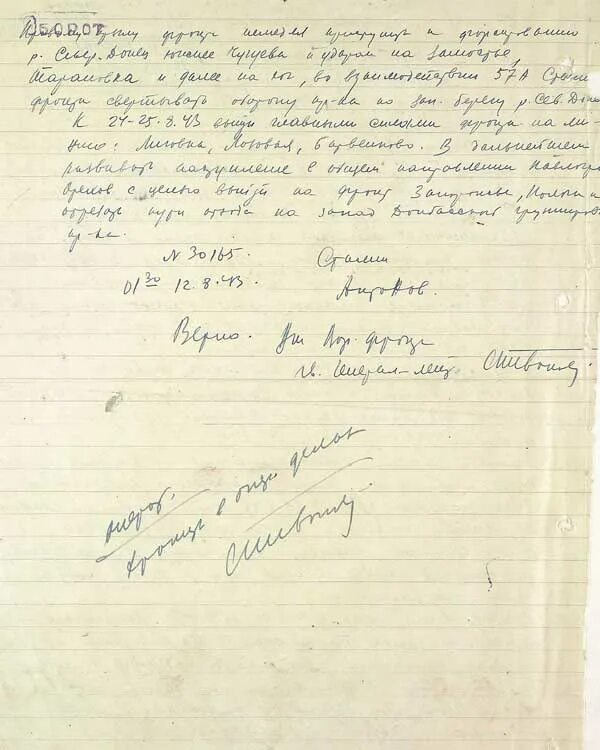 ОБОРОТ
фронту немедля приступить к форсированию
р. Север. Донец южнее Чугуева и ударом на Замостье,
Тарановка и далее на юг, во взаимодействии 57А Степн
фронта свертывать оборону пр-ка по зап. берегу р. Сев. Дон
К 24-25.8.43 выйти главными силами фронта на ли-
нию: Лиговка, Лозовая, Барвенково. В дальнейшем
развивать наступление в общем направлении Павлогр
Орехов с целью выйти на фронт Запорожье, Пологи и
отрезать пути отхода на запад Донбасской группировк
пр-ка.
N 30165. Сталин
01 30 12.8.43. Антонов.
Верно. Нш Вор. фронта
гв. Генерал-лейт.
хранить в опер делах